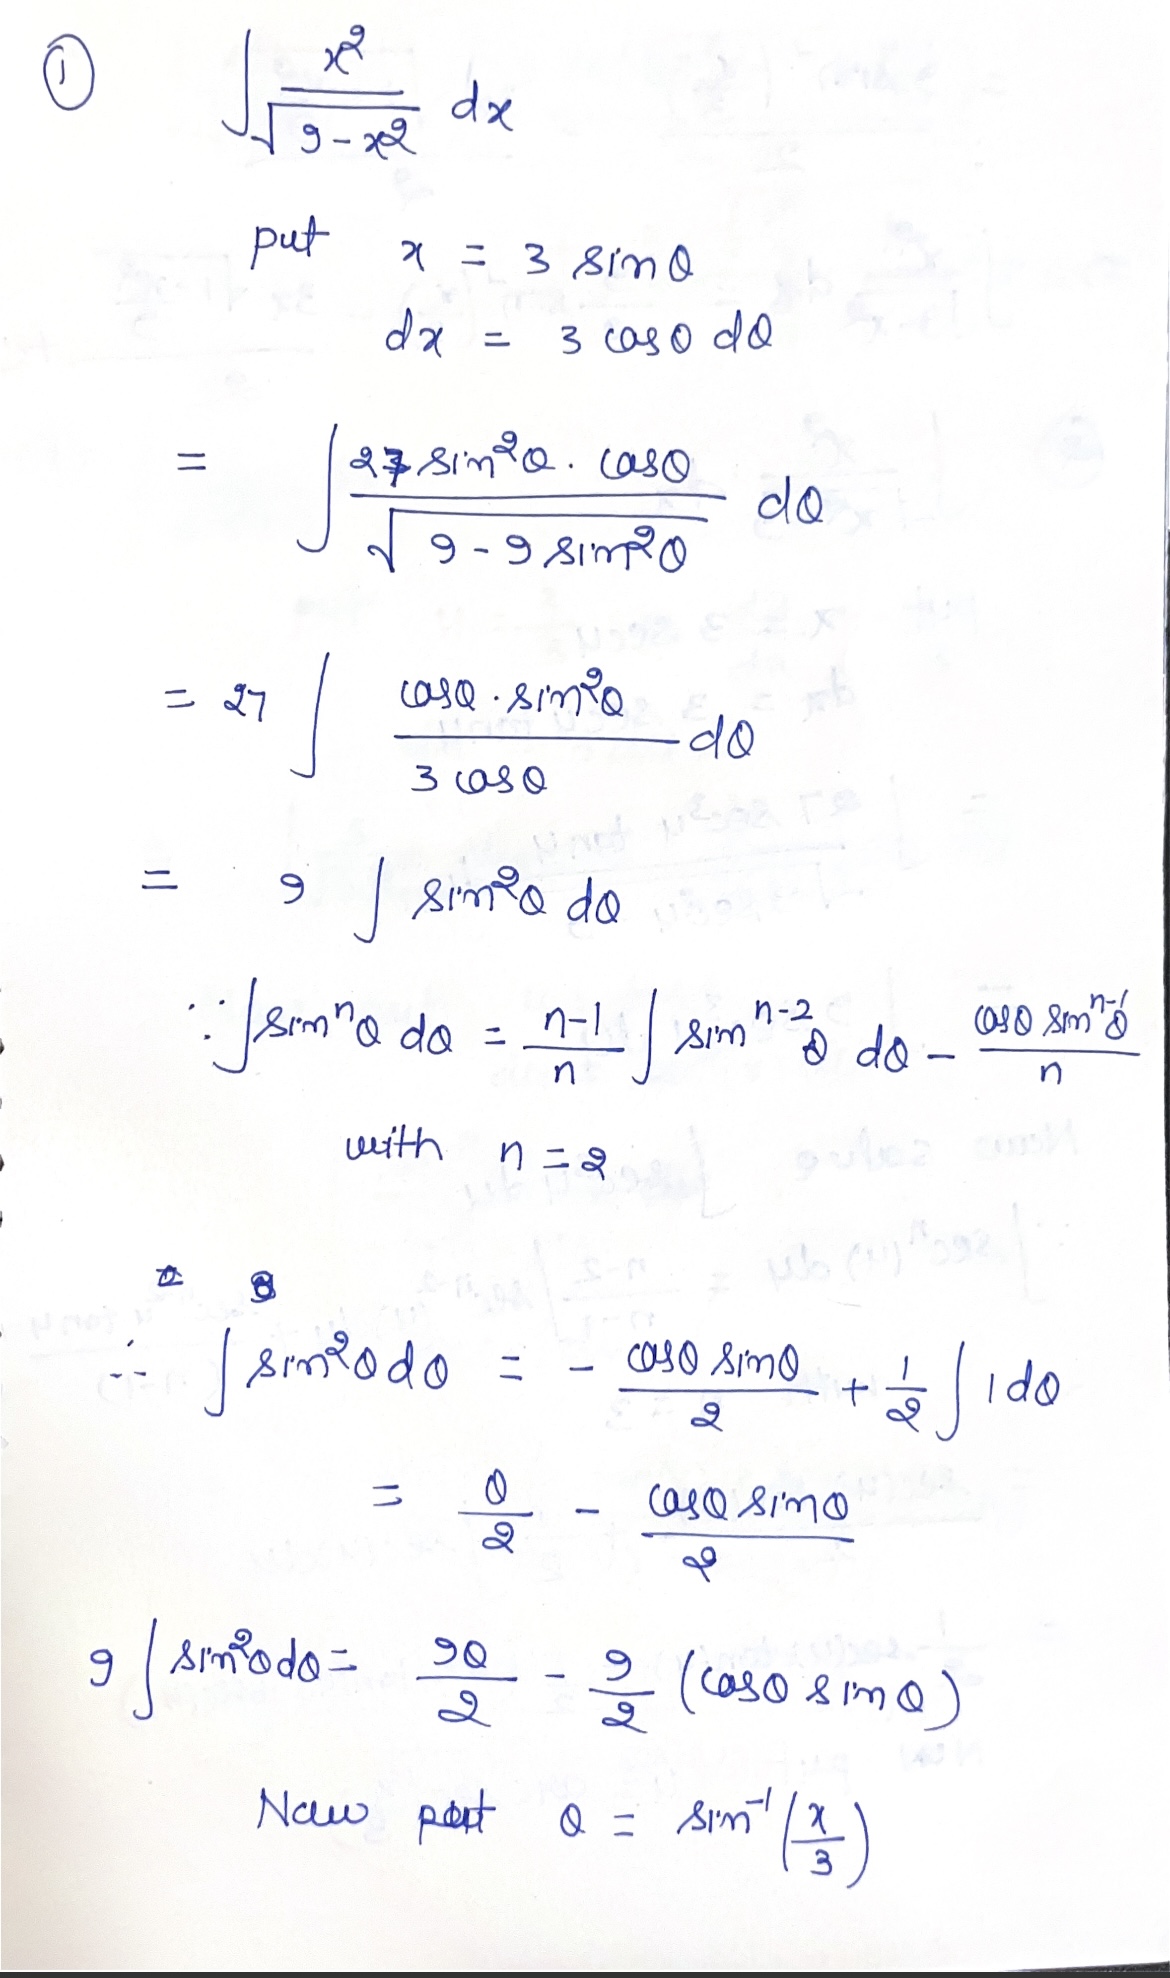 ① ∫ x² / √(9 - x²) dx
put x = 3 sin θ
dx = 3 cos θ dθ
= ∫ 27 sin²θ . cosθ / √(9 - 9 sin²θ) dθ
= 27 ∫ cosθ . sin²θ / 3 cosθ dθ
= 9 ∫ sin²θ dθ
∵ ∫ sinⁿθ dθ = n-1/n ∫ sin^(n-2) θ dθ - cosθ sin^(n-1) θ / n
with n = 2
∴ ∫ sin²θ dθ = - cosθ sinθ / 2 + 1/2 ∫ 1 dθ
= θ/2 - cosθ sinθ / 2
9 ∫ sin²θ dθ = 9θ/2 - 9/2 (cosθ sinθ)
Now put θ = sin⁻¹ (x/3)